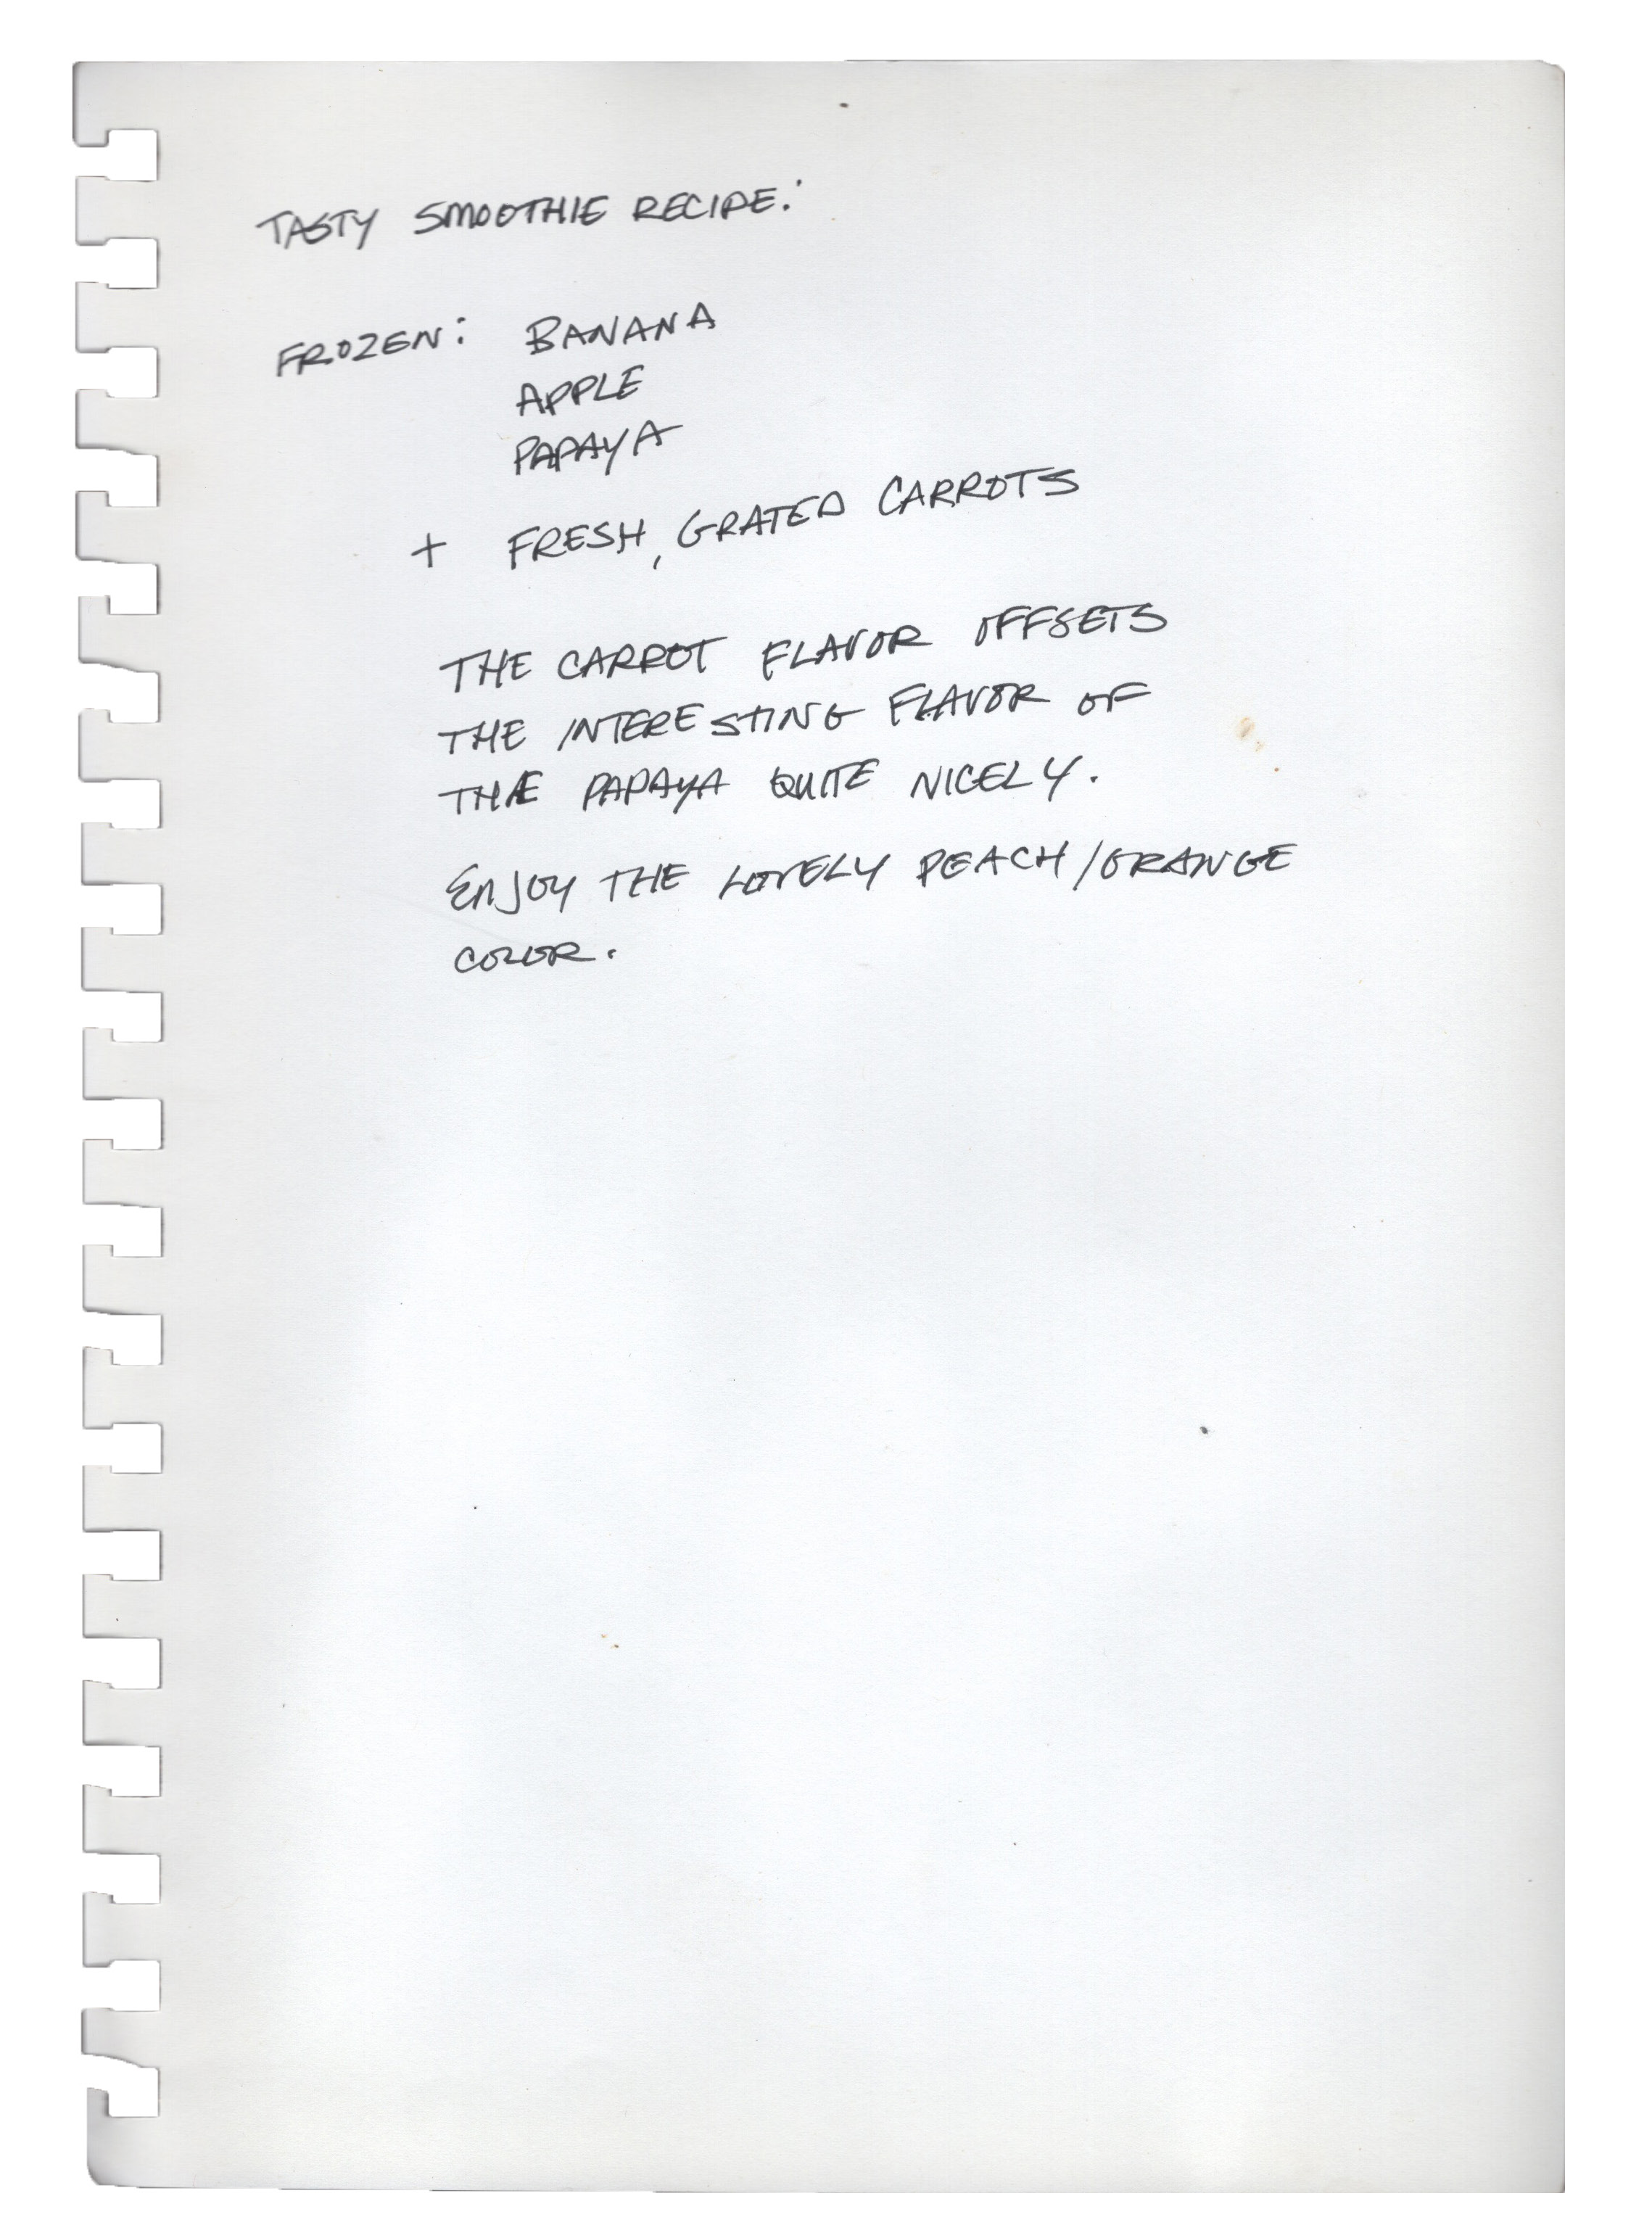 TASTY SMOOTHIE RECIPE:
FROZEN: BANANA
APPLE
PAPAYA
+ FRESH, GRATED CARROTS
THE CARROT FLAVOR OFFSETS
THE INTERESTING FLAVOR OF
THE PAPAYA QUITE NICELY.
ENJOY THE LOVELY PEACH/ORANGE
COLOR.